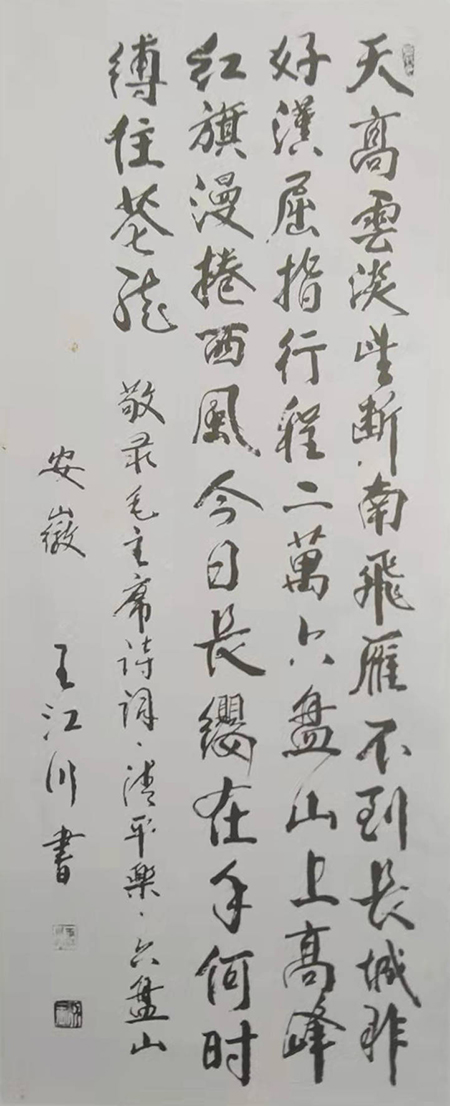 天高雲淡望断南飛雁不到長城非
好漢屈指行程二萬六盘山上高峰
红旗漫捲西風今日長纓在手何時
缚住苍龙 敬录毛主席詩词、清平樂、六盘山
安徽 王江川書